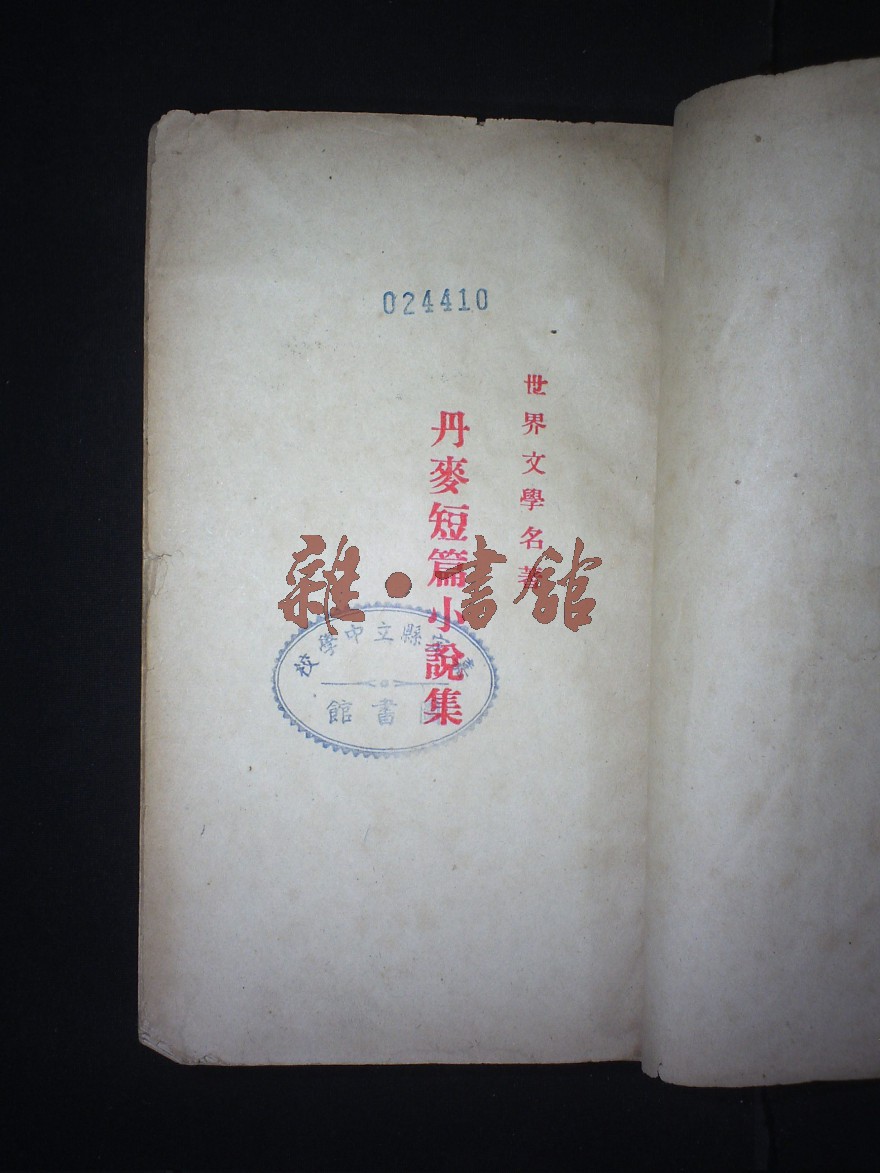 024410
世界文學名著
丹麥短篇小說集
雜·書館
縣立中學校
書館